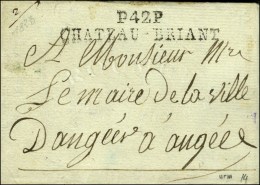 P42P
CHATEAU-BRIANT
A Monsieur Mr
Lemaire de la ville
Dangéer à angée